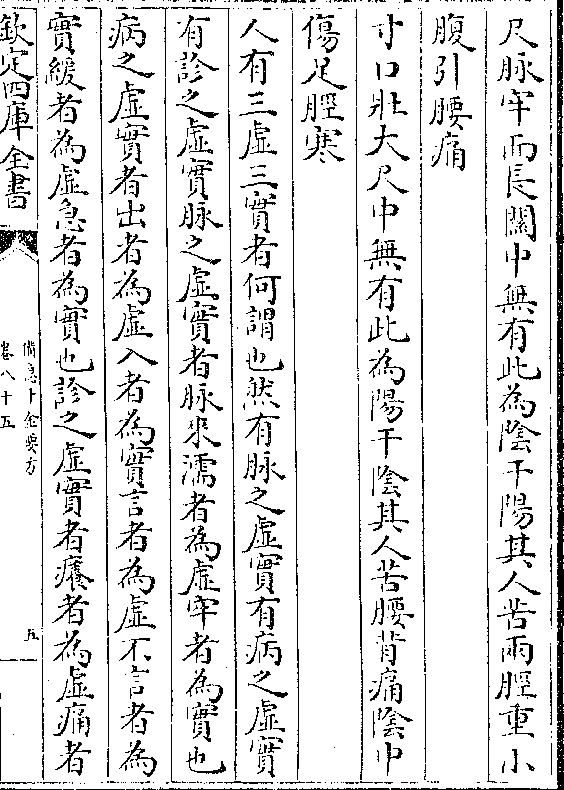 尺脉牢而長闗中無有此為隂干陽其人苦兩脛重小
腹引腰痛
寸口壯大尺中無有此為陽干隂其人苦腰背痛隂中
傷足脛寒
人有三虚三實者何謂也然有脉之虚實有病之虚實
有診之虚實脉之虚實者脉来濡者為虚牢者為實也
病之虚實者出者為虚入者為實言者為虚不言者為
實緩者為虚急者為實也診之虚實者癢者為虚痛者
欽定四庫全書
備急千金要方
卷八十五
五